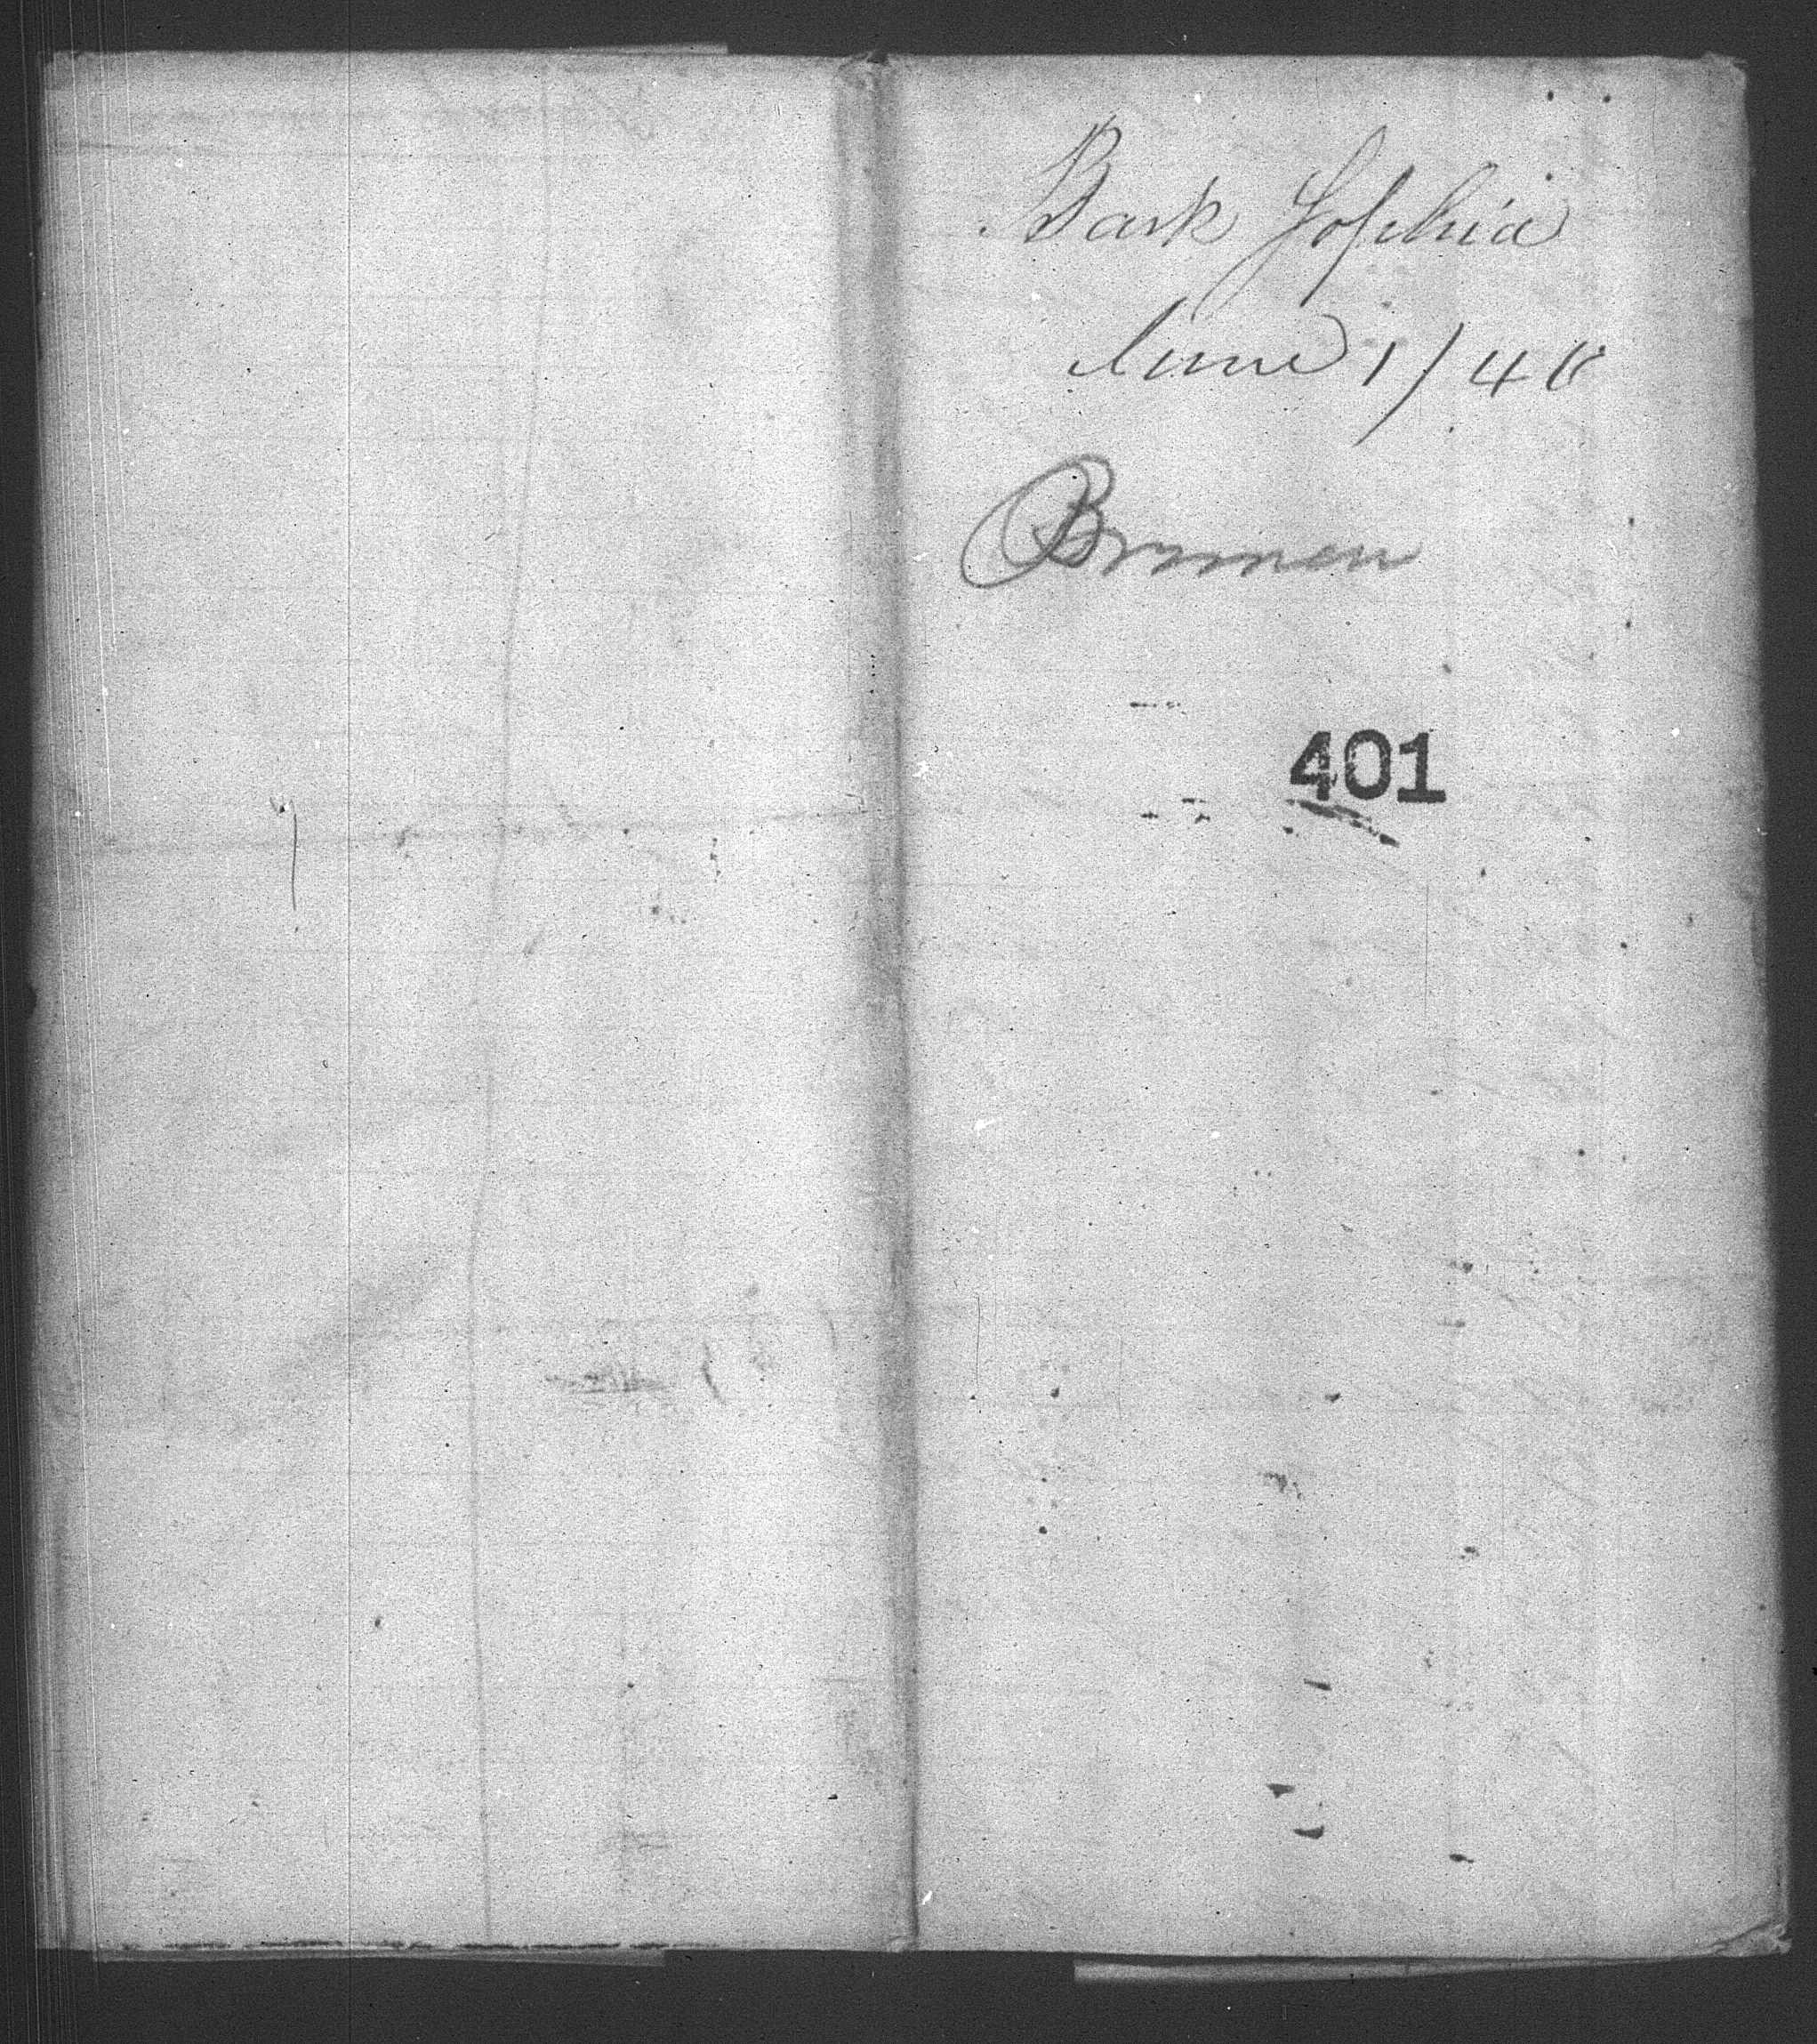 Bark Sophia
June 1/48
Bremen
401